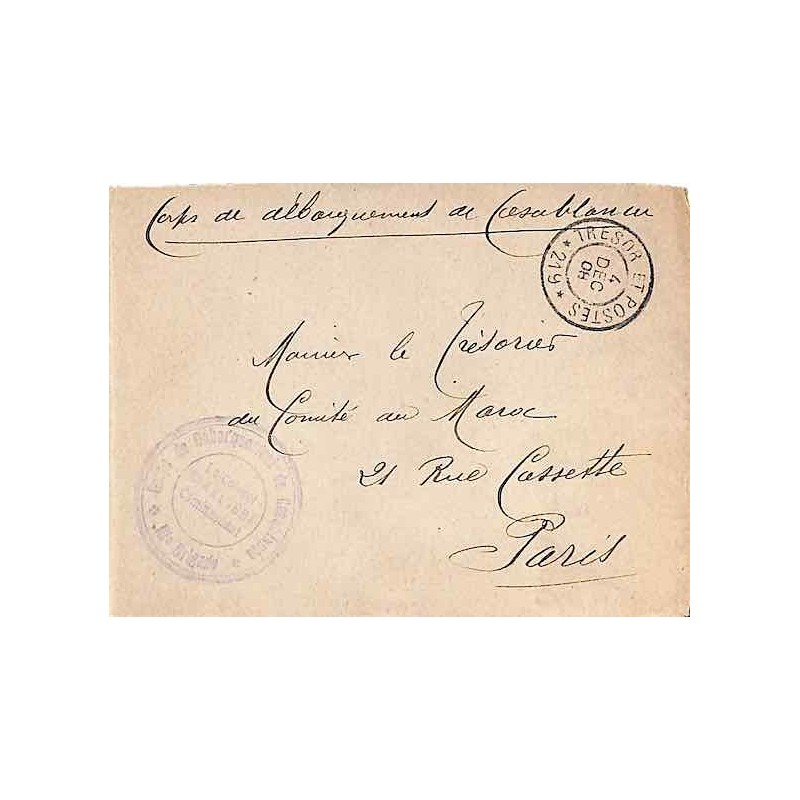 Corps de débarquement de Casablanca
TRESOR ET POSTES
* 219 *
4
DEC
08
Monsieur le Trésorier
du Comité du Maroc
21 Rue Cassette
Paris
de Débarquement de